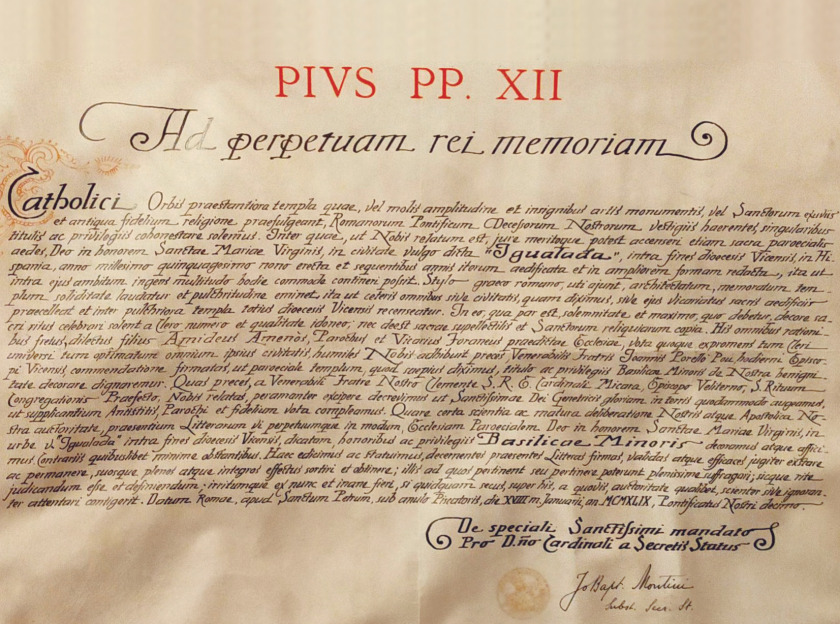 PIVS PP. XII
Ad perpetuam rei memoriam
Catholici Orbis praestantiora templa quae, vel molis amplitudine et insignibus artis monumentis, vel Sanctorum exuviis
et antiqua fidelium religione praefulgeant, Romanorum Pontificum Decessorum Nostrorum vestigiis haerentes, singularibus
titulis ac privilegiis cohonestare solemus. Inter quae, ut Nobis relatum est, jure meritoque potest accenseri etiam sacra paroecialis
aedes, Deo in honorem Sanctae Mariae Virginis, in civitate vulgo dicta "Igualada", intra fines dioecesis Vicensis, in Hi-
spania, anno millesimo quinquagesimo nono erecta et sequentibus annis iterum aedificata et in ampliorem formam redacta, ita ut
intra ejus ambitum ingens multitudo hodie commode contineri possit. Stylo graeco romano, uti ajunt, architectatum, memoratum tem-
plum soliditate laudatur et pulchritudine eminet, ita ut ceteris omnibus sive civitatis, quam diximus, sive ejus vicariatus sacris aedificiis
praecellat et inter pulchriora templa totius dioecesis Vicensis recenseatur. In eo, qua par est, solemnitate et maximo, quo debetur, decore sa-
cri ritus celebrari solent a Clero numero et qualitate idoneo; nec deest sacrae supellectilis et Sanctorum reliquiarum copia. His omnibus rationi-
bus fretus, dilectus filius Amideus Amenós, Parochus et Vicarius Foraneus praedictae Ecclesiae, vota quoque expromens tum Cleri
universi tum optimatum omnium ipsius civitatis, humiles Nobis adhibuit preces Venerabilis Fratris Joannis Perello Pou, hodierni Episco-
pi Vicensis, commendatione firmatas, ut paroeciale templum, quod saepius diximus, titulo ac privilegiis Basilicae Minoris de Nostra benigni-
tate decorare dignaremur. Quas preces, a Venerabili Fratre Nostro Clemente S. R. E. Cardinali Micara, Episcopo Veliterno, S. Rituum
Congregationis Praefecto, Nobis relatas, peramanter excipere decrevimus ut Sanctissimae Dei Genetricis gloriam in terris quodammodo augeamus,
ut supplicantium Antistitis, Parochi et fidelium vota compleamus. Quare certa scientia ac matura deliberatione Nostris atque Apostolica No-
stra auctoritate, praesentium Litterarum vi perpetuumque in modum, Ecclesiam Paroecialem Deo in honorem Sanctae Mariae Virginis, in
urbe v. "Igualada" intra fines dioecesis Vicensis, dicatam, honoribus ac privilegiis Basilicae Minoris decoramus atque affici-
mus. Contrariis quibuslibet minime obstantibus. Haec edicimus ac statuimus, decernentes praesentes Litteras firmas, validas atque efficaces jugiter exstare
ac permanere, suosque plenos atque integros effectus sortiri et obtinere; illis ad quos pertinent seu pertinere poterunt plenissime suffragari; sicque rite
judicandum esse et definiendum; irritumque ex nunc et inane fieri, si quidquam secus, super his, a quovis, auctoritate qualibet, scienter sive ignoran-
ter attentari contigerit. Datum Romae, apud Sanctum Petrum, sub anulo Piscatoris, die XVIII m. Januarii, an. MCMXLIX, Pontificatus Nostri decimo.
De speciali Sanctissimi mandato
Pro D.ño Cardinali a Secretis Status
Jo Bapt. Montini
Subst. Secr. St.